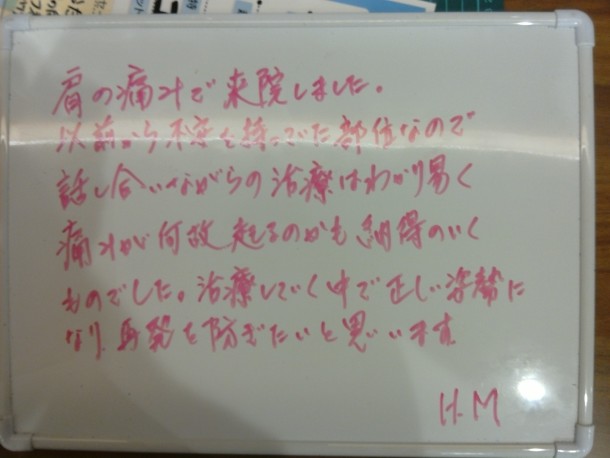 肩の痛みで来院しました。
以前から不安を持っていた部位なので
話し合いながらの治療はわかり易く
痛みが何故起るのかも納得のいく
ものでした。治療していく中で正しい姿勢に
なり、再発を防ぎたいと思います
H.M